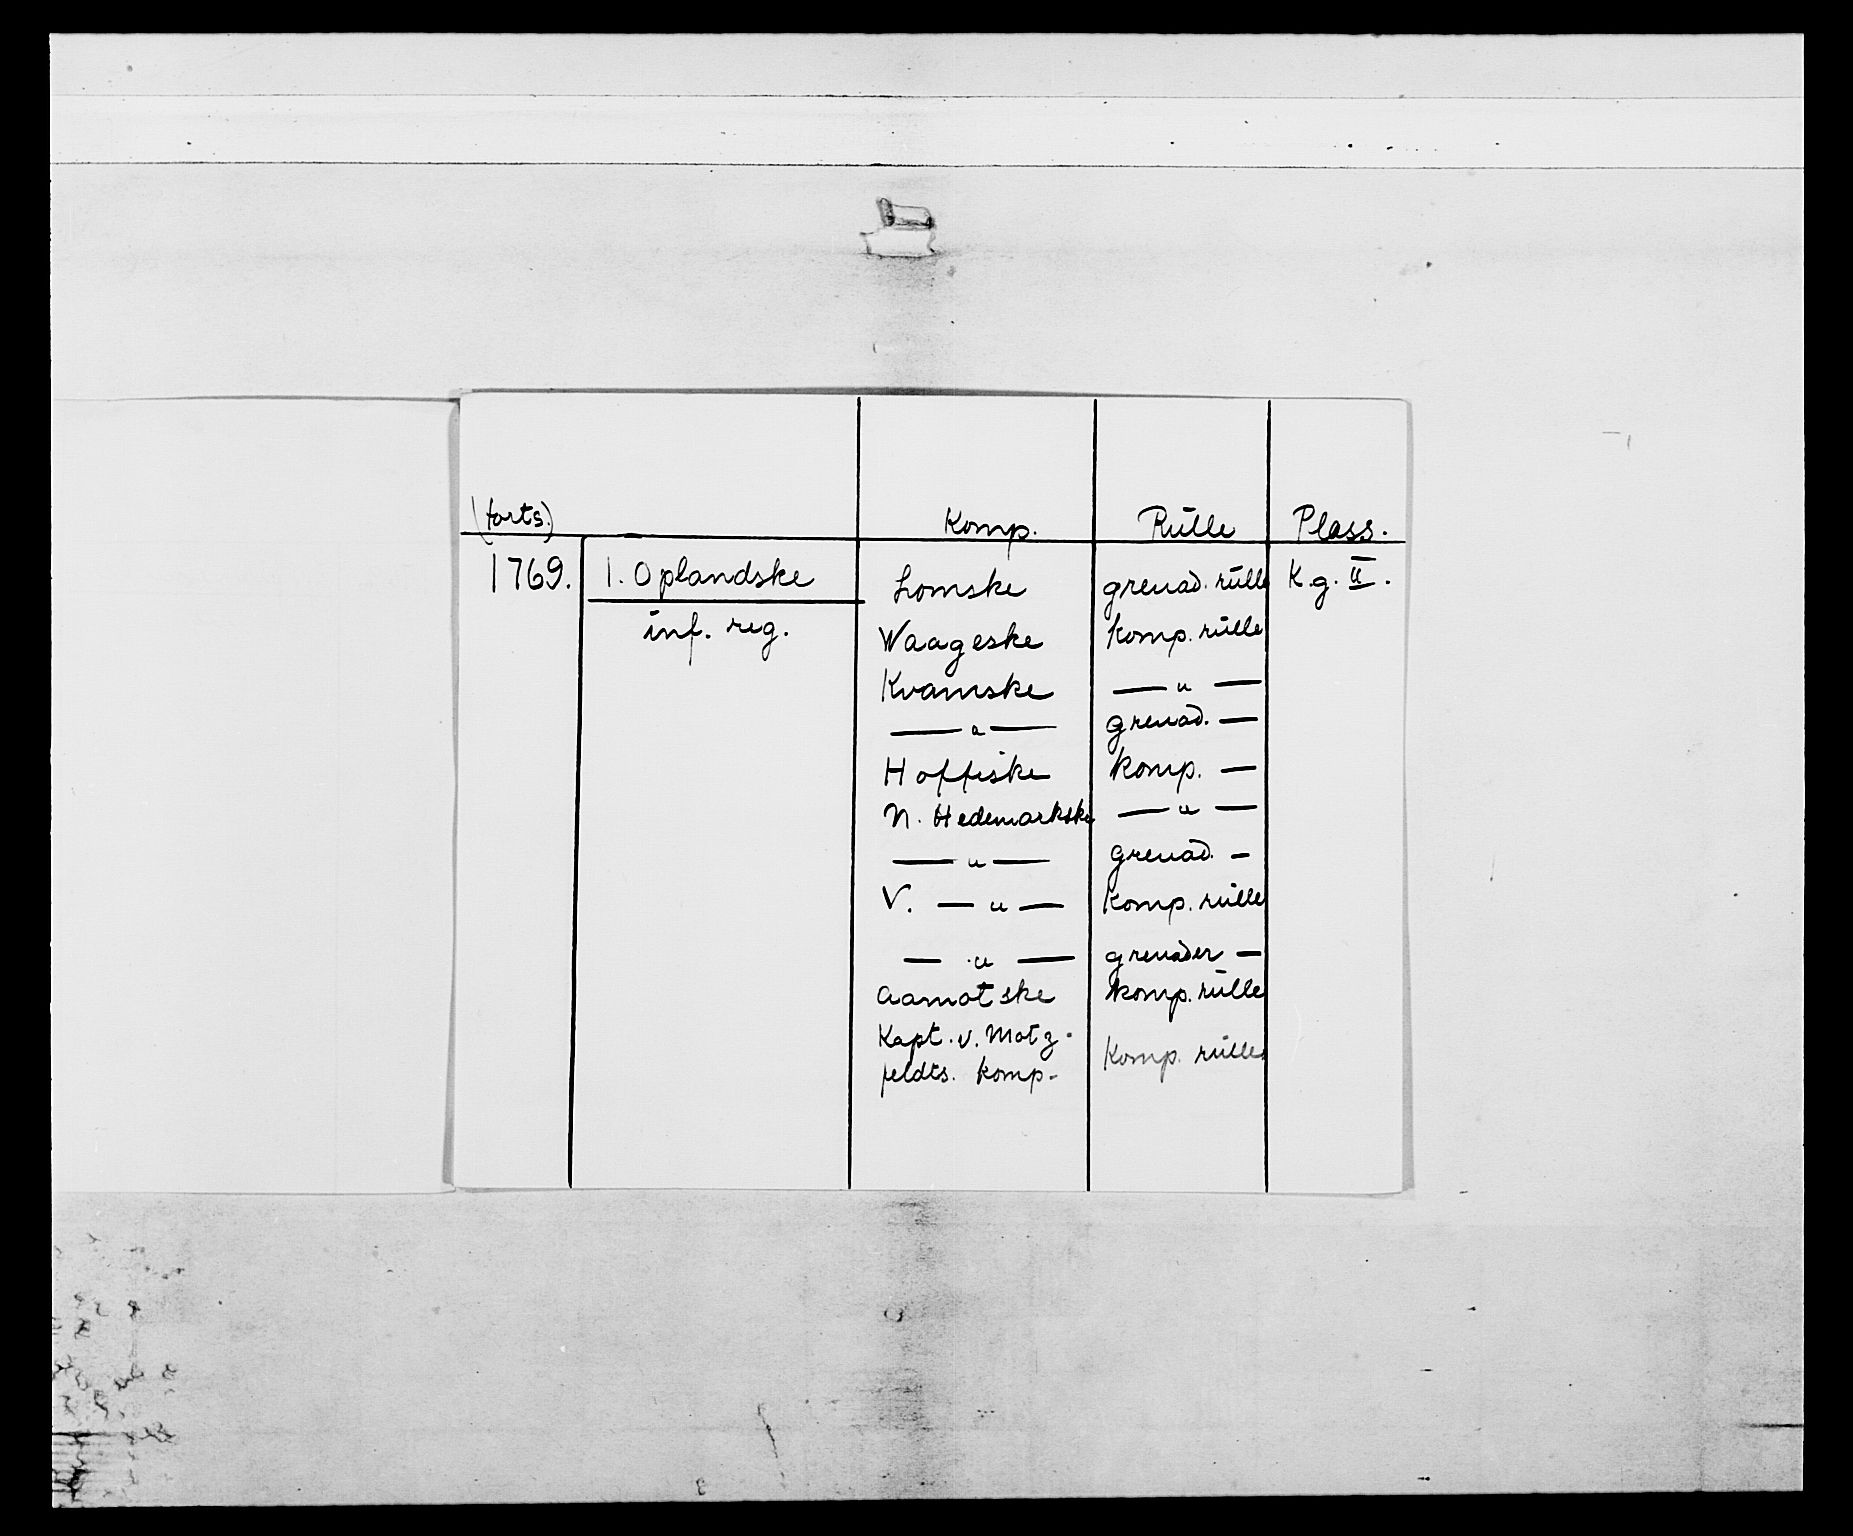 (forts.) Komp. Rülle Plass.
1769. 1. Oplandske Lomske grenad. rülle K.g. II.
inf. reg. Waageske komp. rülle
Kvamske — " —
— " — grenad. —
Hoffiske komp. —
N. Hedemarkske — " —
— " — grenad. —
V. — " — komp. rülle
— " — grenader —
Aamotske komp. rülle
Kapt. v. Motz-
feldts. komp. Komp. rülle